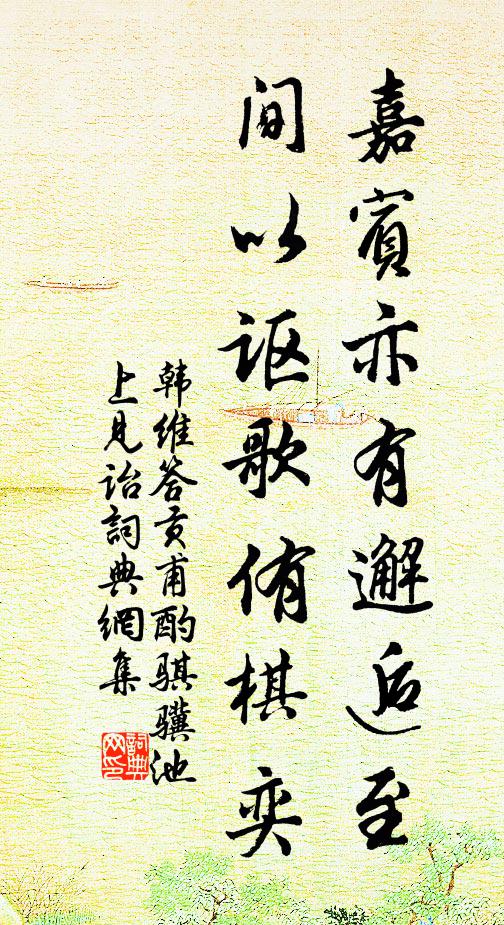 嘉賓亦有邂逅至
间以讴歌侑棋奕
韩维答贡甫酌骐骥池
上見诒詞典網集
詞典
网印